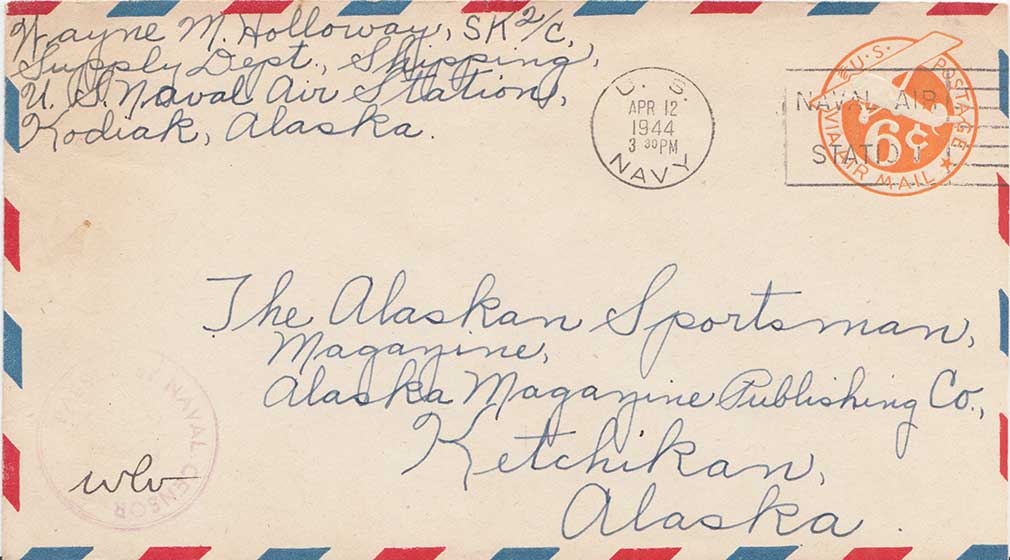 Wayne M. Holloway, SK 2/c,
Supply Dept., Shipping,
U. S. Naval Air Station,
Kodiak, Alaska.
U. S.
APR 12
1944
3 30 PM
NAVY
NAVAL AIR
STATION
U.S. POSTAGE
6¢
VIA AIR MAIL
The Alaskan Sportsman,
Magazine,
Alaska Magazine Publishing Co.,
Ketchikan,
Alaska.
NAVAL CENSOR